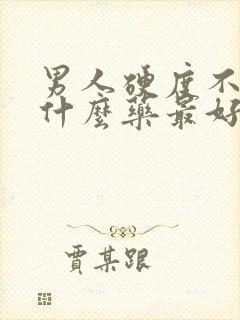 男人硬度不
什麼藥最好
賈某跟